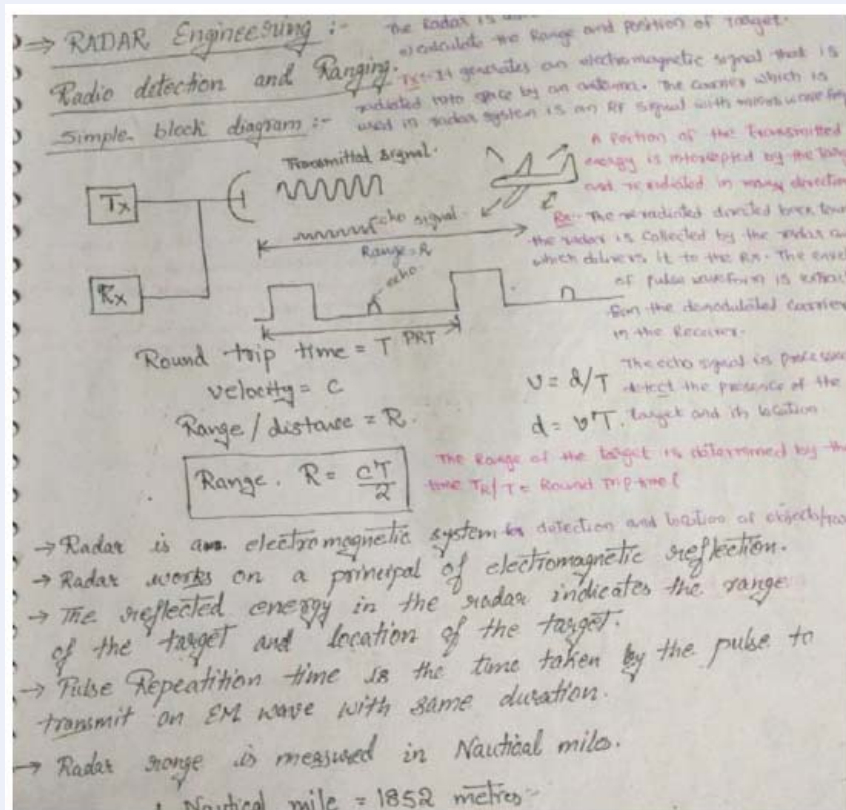 ⇒ RADAR Engineering :-
Radio detection and Ranging.
Simple block diagram :-
The Radar is
calculate the Range and position of Target.
Tx:- It generates an electromagnetic signal that is
radiated into space by an antenna. The carrier which is
used in radar system is an RF signal with microwave
Transmittal signal.
Tx
Rx
echo signal.
Range = R
echo.
PRT
A Portion of the Transmitted
energy is intercepted by the
and reradiated in many
Rx:- The reradiated directed back
the radar is collected by the radar
which delivers it to the Rx. The
of pulse waveform is
the demodulated carrier
in the Receiver.
Round trip time = T
velocity = C
Range / distance = R.
Range. R = CT/2
v = d/T
d = vT.
The echo signal is
detect the presence of the
target and its location
The Range of the target is determined by the
time TR/T = Round Trip time
→ Radar is an electromagnetic system for detection and location of
→ Radar works on a principal of electromagnetic reflection.
→ The reflected energy in the radar indicates the range
of the target and location of the target.
→ Pulse Repeatition time is the time taken by the pulse to
transmit an EM wave with same duration.
→ Radar range is measured in Nautical miles.
1 Nautical mile = 1852 metres